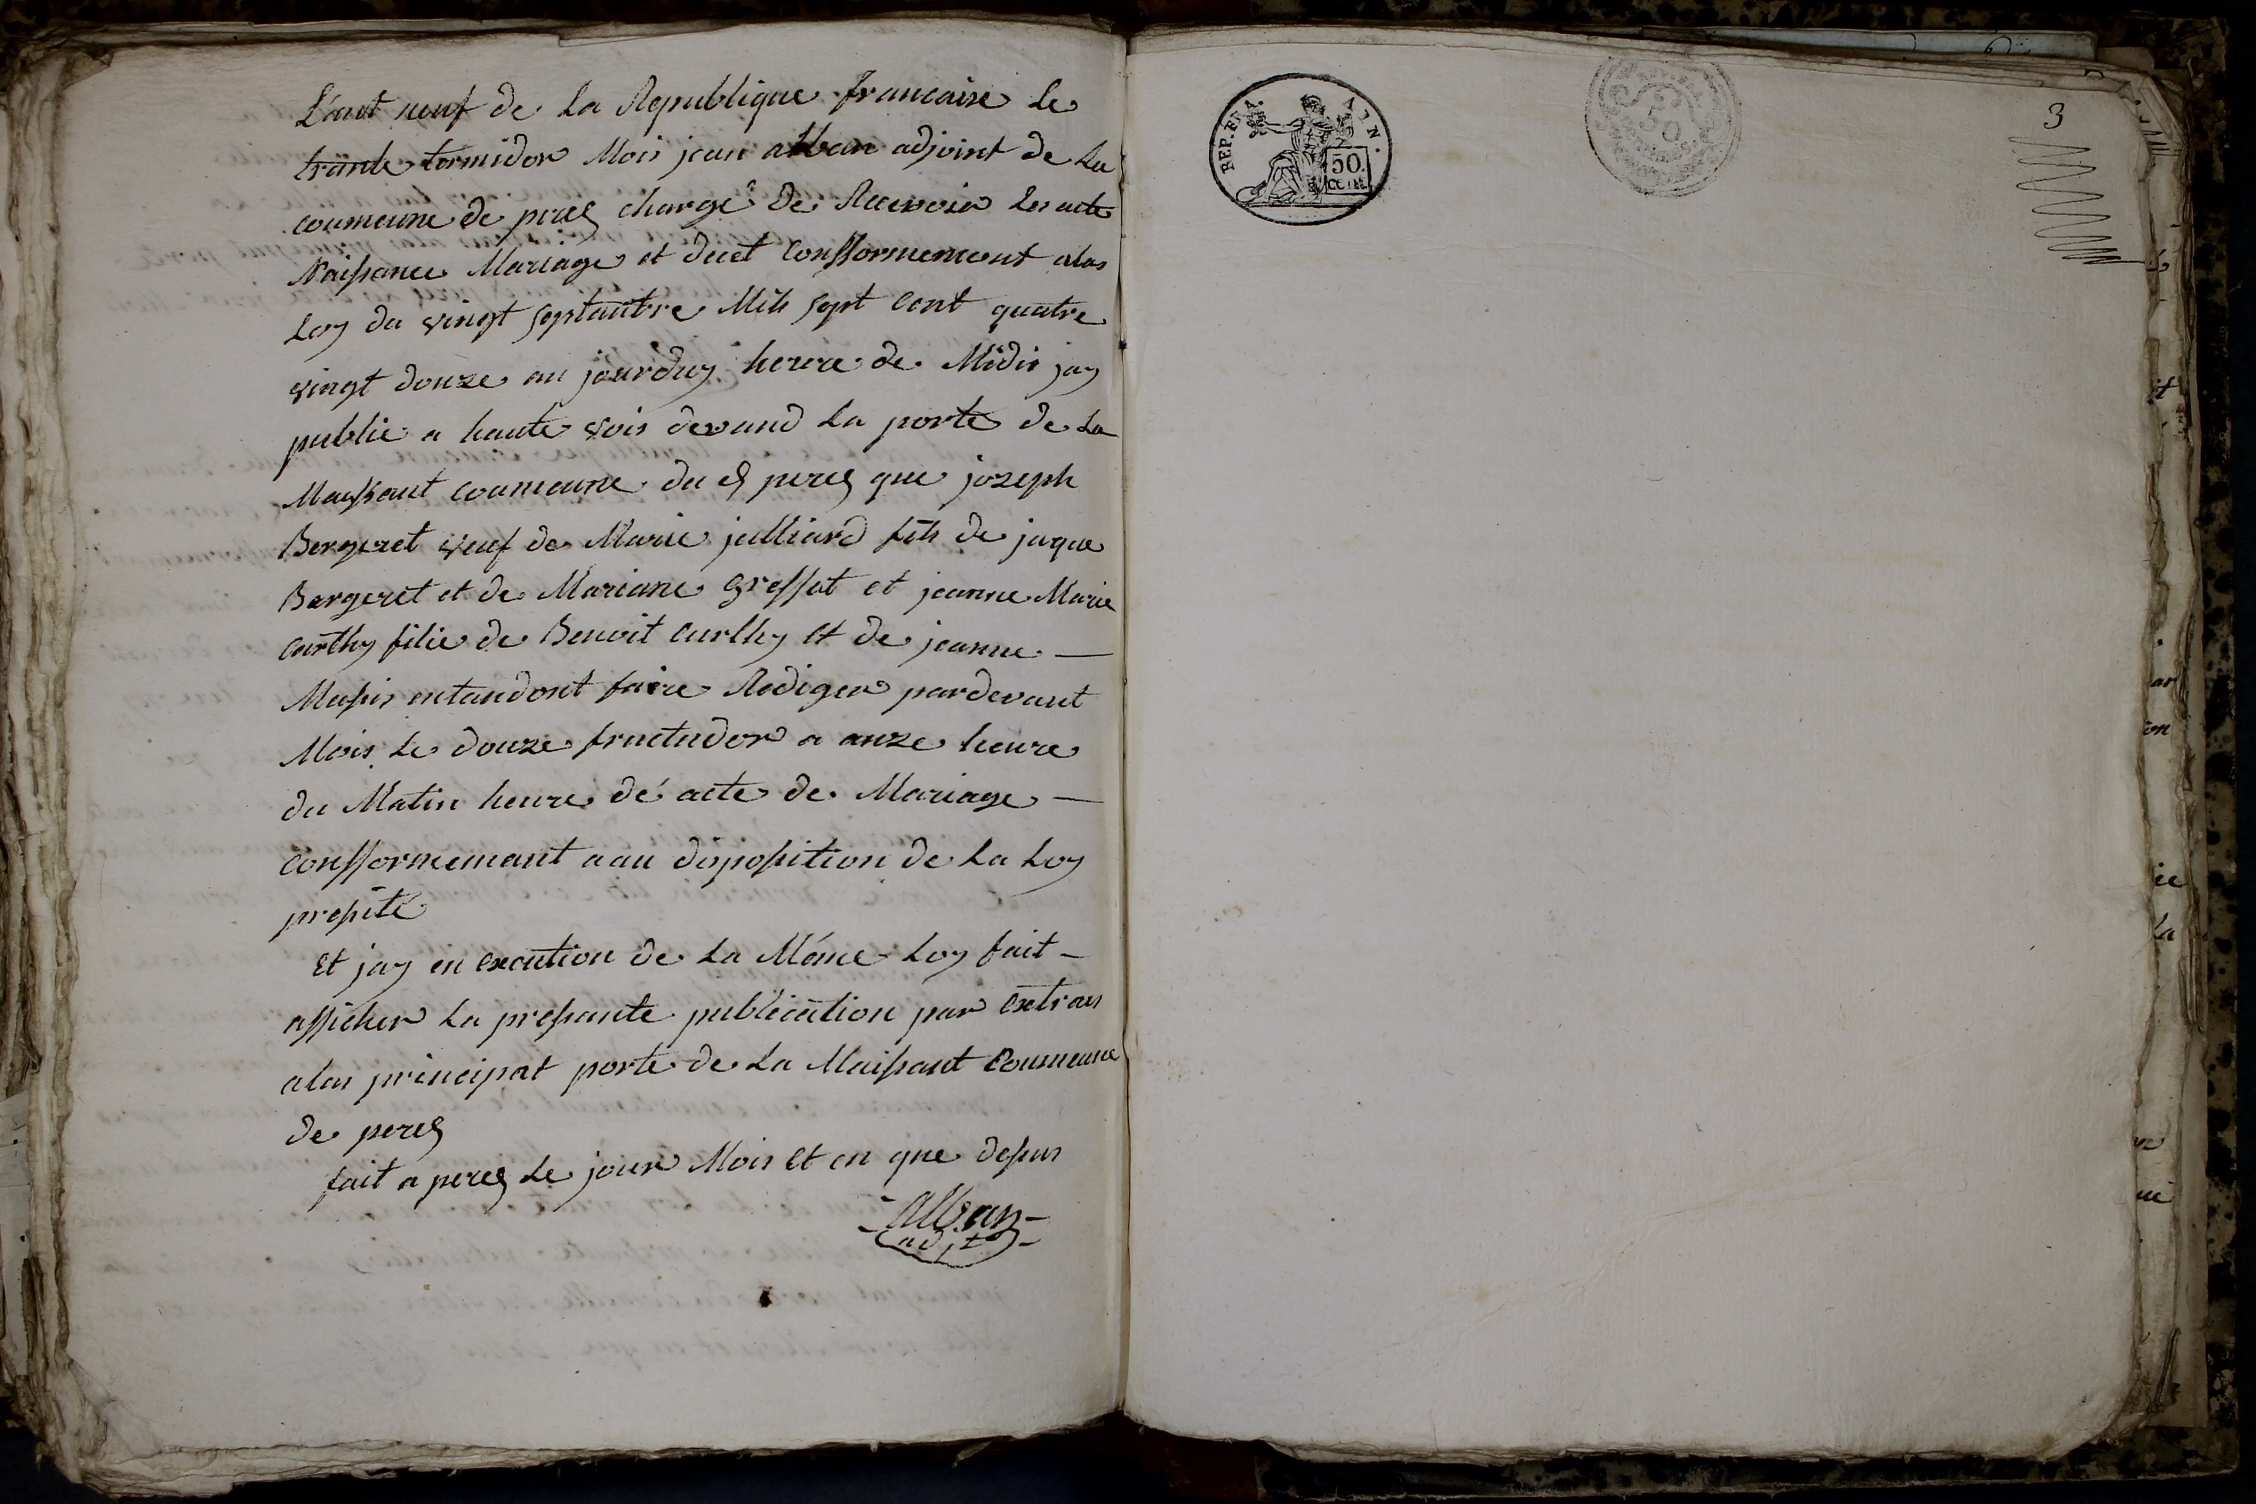 L'ant neuf de La Republique francaise Le
trante termidor Mois jean alban adjoint de La
coumeune de peres chargé De Recevoir Les acte
Naissance Mariage et decet Conssormement alas
Loy du vingt septantbre Mils sept Cent quatre
vingt douze au jourduy heure de Midis jay
publie a haute vois devand La porte de La
Maissant coumeune du d peres que jozeph
Bergeret veuf de Marie julliard fils de jaque
Bergeret et de Mariane Gressot et jeanne Marie
Curthy filie de Benoit Curthy et de jeanne —
Massis entandont faire Rediger pardevant
Mois Le douze fructudor a anze heure
du Matin heure de acte de Mariage —
conssormemant aau disposition de La Loy
presité
Et jay en execution de La Méme Loy fait –
afficher La presante publication par Extrais
alas principat porte de La Maissant Coumeune
de peres
fait a peres Le jour Mois et en que desus
Alban
adjt
REP. FRA. 50 CENT.
50
3